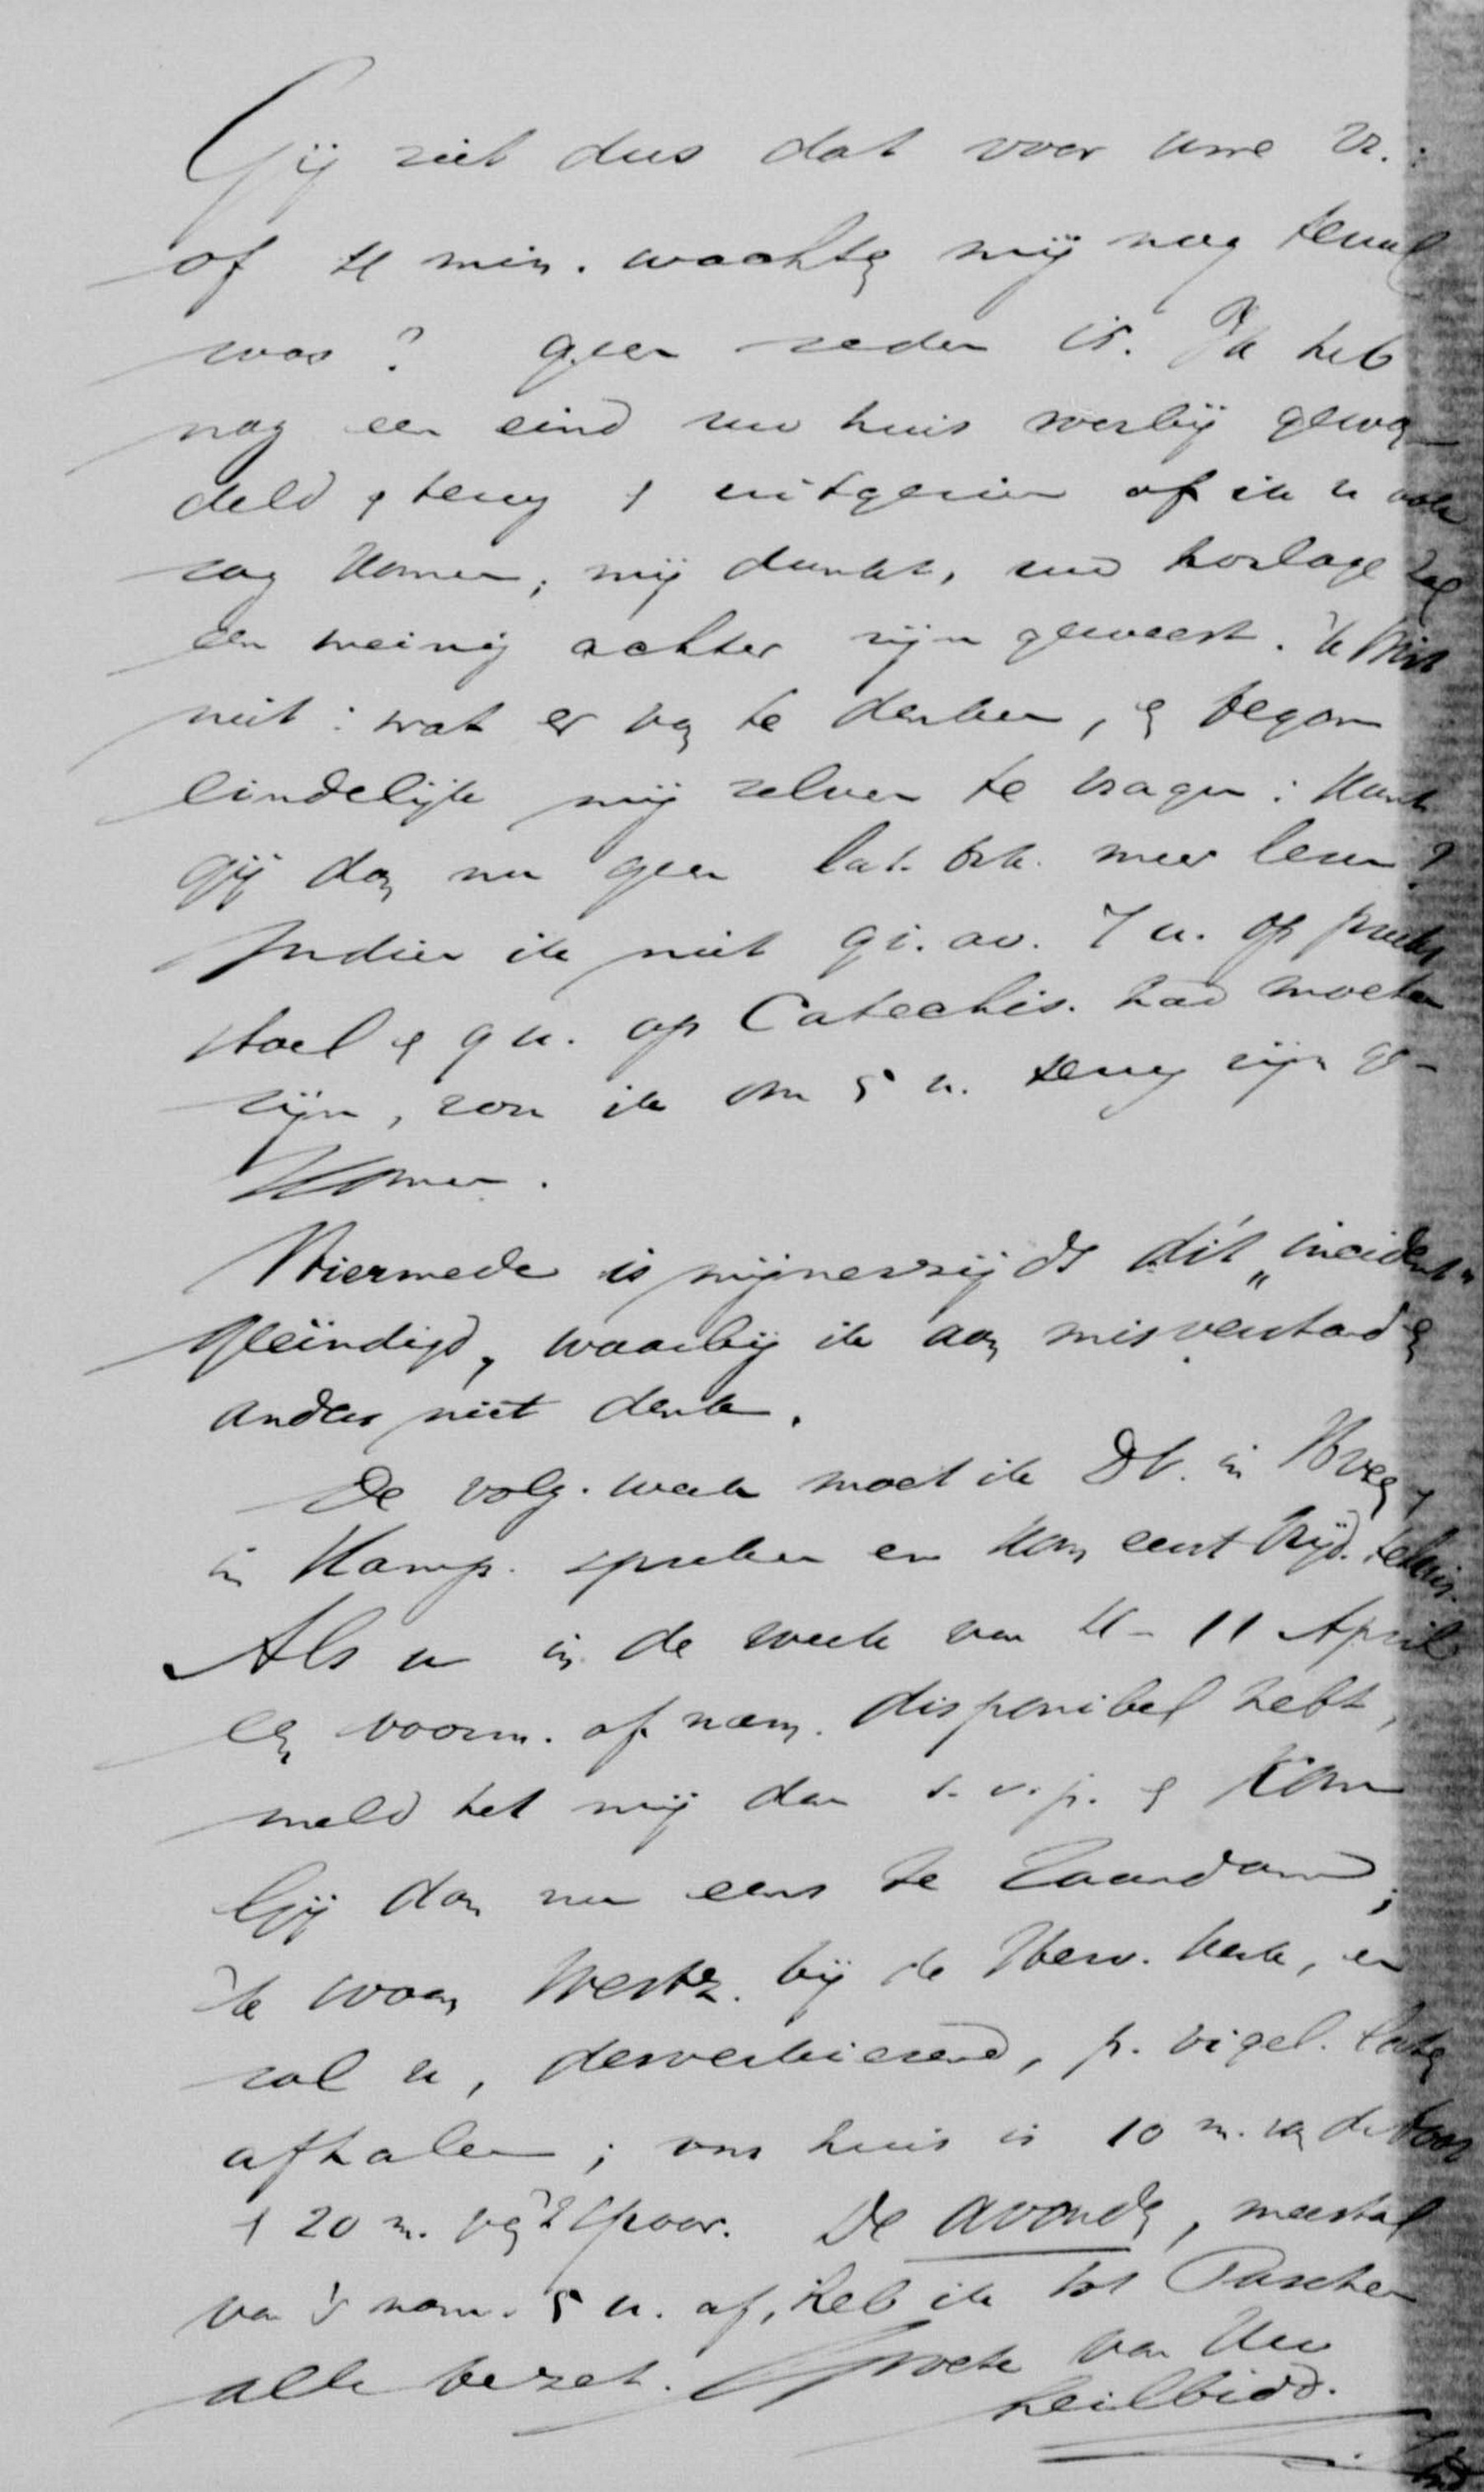 Gij ziet dus dat voor uwe vr.:
of 4 min. wachten mij nog teveel
was? geen reden is. Ik heb
nog een eind uw huis voorbij gewan-
deld & terug & uitgezien of ik u ook
zag komen; mij dunkt, uw horloge zal
een weinig achter zijn geweest. Ik wist
niet: wat er van te denken, en begon
eindelijk mij zelven te vragen: kunt
gij dan nu geen lat. brk. meer lezen?
Indien ik niet gi. av. 7 u. op preek
stoel & 9 u. op Catechis. had moeten
zijn, zou ik om 5 u. terug zijn ge-
komen.
Hiermede is mijnerzijds dit „incident"
geëindigd, waarbij ik aan misverstand en
anders niet denk.
De volg. week moet ik Db. in Hoog
in Kamp. spreken en kan eerst Vrijd. tehuis.
Als u in de week van 4-11 April
een voorm. of nam. disponibel hebt,
meld het mij dan s.v.p. & kom
Gij dan nu eens te Zaandam;
'k woon Westz. bij de Herv. kerk, en
zal u, desverkiezend, p. vigel. laten
afhalen; ons huis is 10 m. van de boot
& 20 m. van 't Spoor. De avonden, meestal
van 's nam. 5 u. af, heb ik tot Paschen
alle bezet. Groete van Uw
heilbidd.